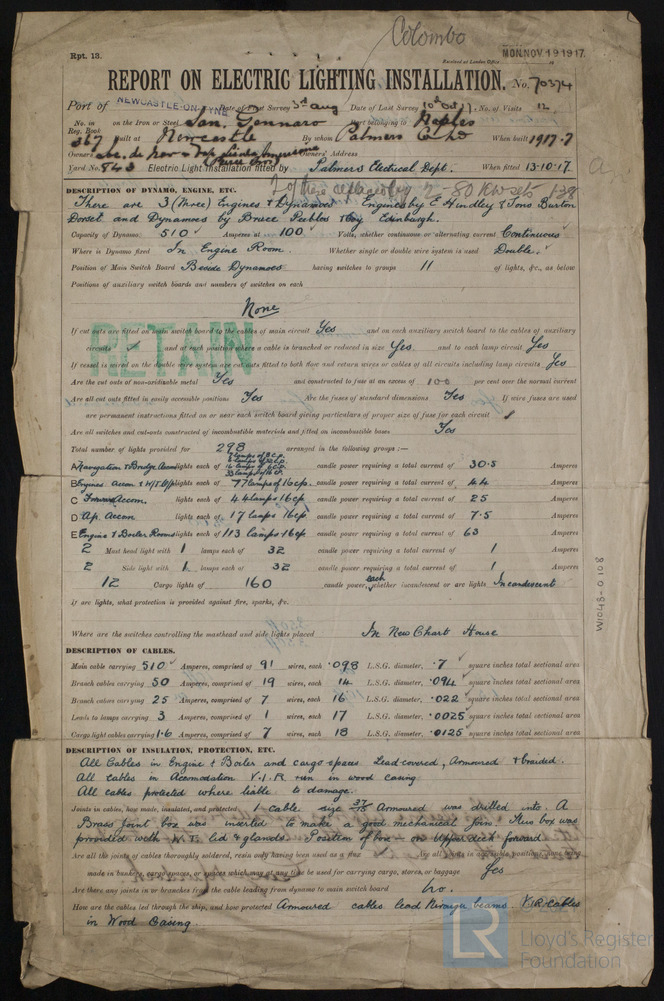 Colombo
Rpt. 13.
MON. NOV 19 1917.
Received at London Office
REPORT ON ELECTRIC LIGHTING INSTALLATION. No. 70374
Port of NEWCASTLE-ON-TYNE Date of First Survey 3rd Aug Date of Last Survey 10th Oct 17 No. of Visits 12
No. in on the Iron or Steel San Gennaro Port belonging to Naples
Reg. Book
367 Built at Newcastle By whom Palmers Co Ltd When built 1917-7
Owners Owners' Address
Yard No. 843 Electric Light Installation fitted by Palmers Electrical Dept. When fitted 13-10-17.
2 of these replaced by 2-80 KW sets 1.38
DESCRIPTION OF DYNAMO, ENGINE, ETC.
There are 3 (three) Engines & Dynamos Engines by E Hindley & Sons Burton
Dorset and Dynamos by Bruce Peebles & Coy Edinburgh.
Capacity of Dynamo 510 Amperes at 100 Volts, whether continuous or alternating current Continuous
Where is Dynamo fixed In Engine Room. Whether single or double wire system is used Double.
Position of Main Switch Board Beside Dynamos having switches to groups 11 of lights, &c., as below
Positions of auxiliary switch boards and numbers of switches on each
None
If cut outs are fitted on main switch board to the cables of main circuit Yes and on each auxiliary switch board to the cables of auxiliary
circuits and at each position where a cable is branched or reduced in size Yes and to each lamp circuit Yes
RETAIN
If vessel is wired on the double wire system are cut outs fitted to both flow and return wires or cables of all circuits including lamp circuits Yes
Are the cut outs of non-oxidizable metal Yes and constructed to fuse at an excess of 100 per cent over the normal current
Are all cut outs fitted in easily accessible positions Yes Are the fuses of standard dimensions Yes If wire fuses are used
are permanent instructions fitted on or near each switch board giving particulars of proper size of fuse for each circuit
Are all switches and cut-outs constructed of incombustible materials and fitted on incombustible bases Yes
Total number of lights provided for 298 arranged in the following groups :—
A Navigation & Bridge Accom lights each of candle power requiring a total current of 30.5 Amperes
B Engines Accom & W/T. Off lights each of 77 lamps of 16 cp. candle power requiring a total current of 44 Amperes
C Forward Accom. lights each of 44 lamps 16 cp candle power requiring a total current of 25 Amperes
D Ap. Accom lights each of 17 lamps 16 cp candle power requiring a total current of 7.5 Amperes
E Engine & Boiler Rooms lights each of 113 lamps 16 cp candle power requiring a total current of 63 Amperes
2 Mast head light with 1 lamps each of 32 candle power requiring a total current of 1 Amperes
2 Side light with 1 lamps each of 32 candle power requiring a total current of 1 Amperes
12 Cargo lights of 160 candle power, each whether incandescent or arc lights Incandescent
If arc lights, what protection is provided against fire, sparks, &c.
Where are the switches controlling the masthead and side lights placed In New Chart House
DESCRIPTION OF CABLES.
Main cable carrying 510 Amperes, comprised of 91 wires, each .098 L.S.G. diameter, .7 square inches total sectional area
Branch cables carrying 50 Amperes, comprised of 19 wires, each 14 L.S.G. diameter, .094 square inches total sectional area
Branch cables carrying 25 Amperes, comprised of 7 wires, each 16 L.S.G. diameter, .022 square inches total sectional area
Leads to lamps carrying 3 Amperes, comprised of 1 wires, each 17 L.S.G. diameter, .0025 square inches total sectional area
Cargo light cables carrying 1.6 Amperes, comprised of 7 wires, each 18 L.S.G. diameter, .0125 square inches total sectional area
DESCRIPTION OF INSULATION, PROTECTION, ETC.
All Cables in Engine & Boiler and cargo spaces Lead covered, Armoured & braided.
All cables in Acomodation V.I.R run in wood casing
All cables protected where liable to damage.
Joints in cables, how made, insulated, and protected 1 cable size Armoured was drilled into. A
Brass joint box was inserted to make a good mechanical join. This box was
provided with W.T. lid & glands. Position of box - on upper deck forward.
Are all the joints of cables thoroughly soldered, resin only having been used as a flux Are all joints in accessible positions, none being
made in bunkers, cargo spaces, or spaces which may at any time be used for carrying cargo, stores, or baggage Yes
Are there any joints in or branches from the cable leading from dynamo to main switch board No.
How are the cables led through the ship, and how protected Armoured cables lead through beams. V.I.R cables
in Wood Casing.
W1048-0108
LR
Lloyd's Register
Foundation